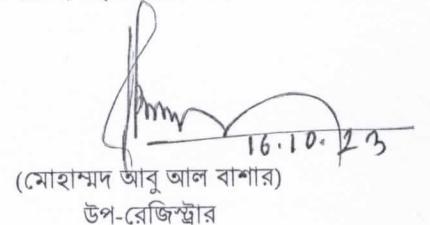 16.10.23
(মোহাম্মদ আবু আল বাশার)
উপ-রেজিস্ট্রার